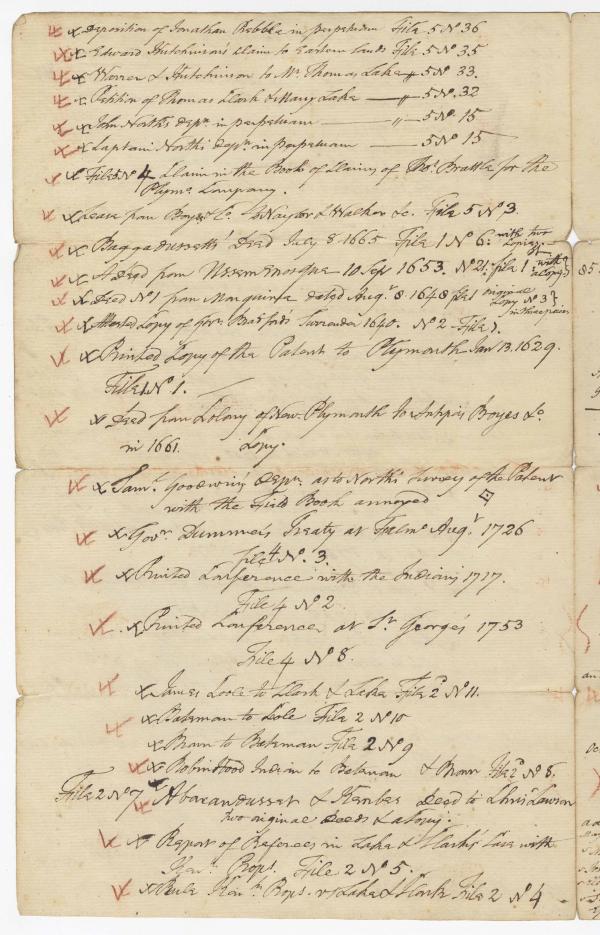 Deposition of Jonathan Preble in perpetuam File 5 No 36
Edward Hutchinson's Claim to Eastern lands File 5 No 35
Warren & Hutchinson to Mr. Thomas Lake " 5 No 33.
Petition of Thomas Clark & Mary Lake — " 5 No. 32
John North's Depn. in perpetuam — " 5 No. 15
Captain North's depn. in perpetuam — 5 No 15
File 5 No 4 Claim in the Book of Claims of Tho: Brattle for the
Plymo. Company.
Lease from Boyes & Co. to Naylor & Walker &c. File 5 No 3.
Baggadussett's Deed July 8 1665 File 1 No 6: with two
Copies.
A Deed from 10 Sep 1653. No 21. file 1 with
a Copy
Deed No 1 from Monquine dated Augt. 8. 1648 file 1 original
Copy No 3
in three pieces
Attested Copy of Govr. Bradford's Surrender 1640. No 2 - File 1.
Printed Copy of the Patent to Plymouth Jan 13. 1629.
File 1 No 1.
Deed from Colony of New Plymouth to Antipas Boyes &c.
in 1661. Copy.
Saml. Goodwin's Depn. as to North's Survey of the Patent
with the Field Book annexed
Govr. Dummer's Treaty at Falmo. Augt. 1726
file 4 No. 3.
Printed Conference with the Indians 1717.
File 4 No 2
Printed Conference at St. George's 1753
File 4 No 8.
James Cole to Clark & Lake File 2 No 11.
Bateman to Cole File 2 No 10
Brown to Bateman File 2 No 9
Robinhood Indian to Bateman & Brown File 2 No 8.
File 2 No 7 Abacandusset & Kenbes Deed to Chrisr. Lawson
two original Deeds & a Copy.
Report of Referees in Lake & Clark's Case with
Kenn. Props. File 2 No 5.
Rule Kenn. Props. vs Lake & Clark File 2 No 4
85.